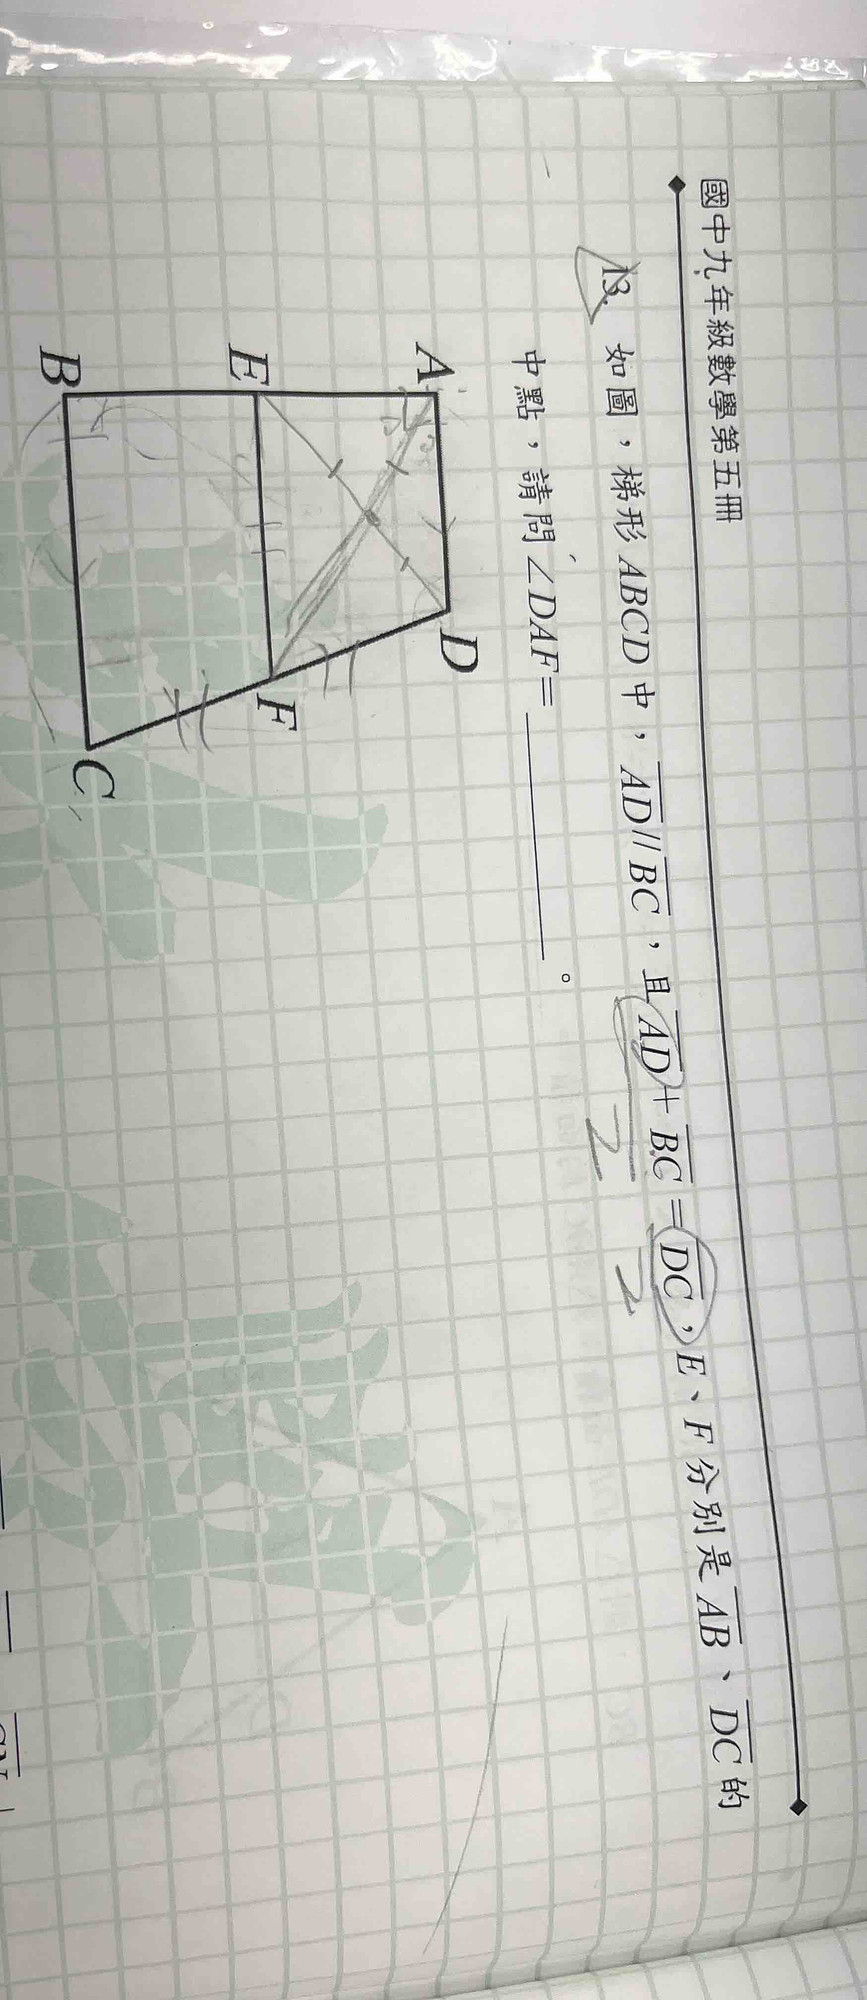 國中九年級數學第五冊
13. 如圖，梯形 ABCD 中，AD // BC，且 AD + BC = DC，E、F 分別是 AB、DC 的
中點，請問∠DAF = ＿＿＿＿＿。
2 2
A
D
E
F
B
C